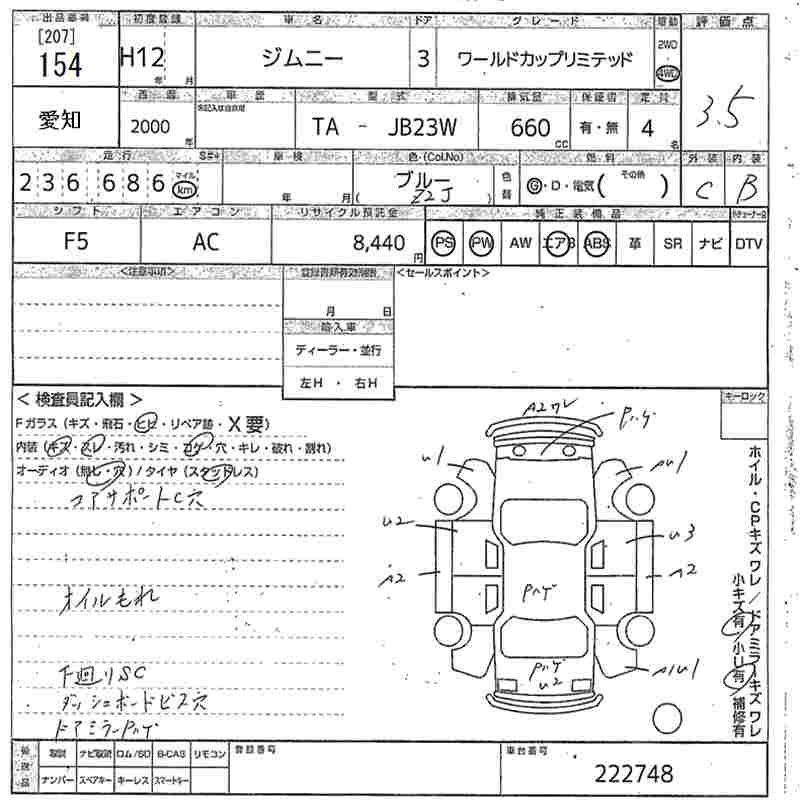 出品番号 初度登録 車名 ドア グレード 駆動 評価点
[207] 154 H12 年 月 ジムニー 3 ワールドカップリミテッド 2WD 4WD 3.5
愛知 西暦 車歴 型式 排気量 保証書 定員
2000 年 TA - JB23W 660 CC 有・無 4 名
走行 車検 色(Col.No) 色替 燃料 外装 内装
236,686 マイル km 年 月 ブルー ( Z2J ) G・D・電気 ( その他 ) C B
シフト エアコン リサイクル預託金 純正装備品
F5 AC 8,440 円 PS PW AW エアB ABS 革 SR ナビ DTV
<注意事項> 登録書類有効期限 <セールスポイント>
月 日
輸入車
ディーラー・並行
左H ・ 右H
< 検査員記入欄 > キーロック
Fガラス (キズ・飛石・ヒビ・リペア跡・X要)
内装 (キズ・スレ・汚れ・シミ・コゲ・穴・キレ・破れ・割れ)
オーディオ (無し・穴) / タイヤ (スタッドレス)
コアサポートC穴
オイルもれ
下廻りSC
ダッシュボードビス穴
ドアミラーPハゲ
A2ワレ Pハゲ
U1 AU1
U2 U3
A2 A2
Pハゲ
Pハゲ U2 AU1
ホイル・CPキズ ワレ / ドアミラーキズ ワレ
小キズ有 / 小U有 / 補修有
後送品 取説 ナビ取説 ロム/SD B-CAS リモコン 登録番号 車台番号
ナンバー スペアキー キーレス スマートキー 222748